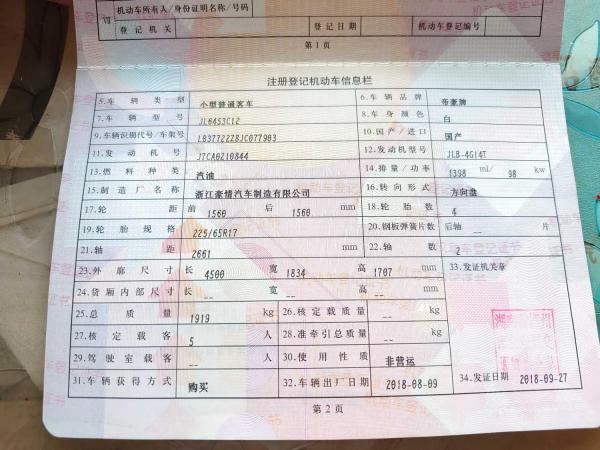 机动车所有人/身份证明名称/号码
登记机关 登记日期 机动车登记编号
第1页
注册登记机动车信息栏
5.车辆类型 小型普通客车 6.车辆品牌 帝豪牌
7.车辆型号 JL6453C12 8.车身颜色 白
9.车辆识别代号/车架号 LB37722Z8JC077903 10.国产/进口 国产
11.发动机号 J7CA0210844 12.发动机型号 JLB-4G14T
13.燃料种类 汽油 14.排量/功率 1398 ml/ 98 kw
15.制造厂名称 浙江豪情汽车制造有限公司 16.转向形式 方向盘
17.轮距 前 1560 后 1560 mm 18.轮胎数 4
19.轮胎规格 225/65R17 20.钢板弹簧片数 后轴 -- 片
21.轴距 2661 mm 22.轴数 2
23.外廓尺寸 长 4500 宽 1834 高 1707 mm 33.发证机关章
24.货厢内部尺寸 长 -- 宽 -- 高 -- mm
25.总质量 1919 kg 26.核定载质量 -- kg
27.核定载客 5 人 28.准牵引总质量 -- kg
29.驾驶室载客 -- 人 30.使用性质 非营运
31.车辆获得方式 购买 32.车辆出厂日期 2018-08-09 34.发证日期 2018-09-27
第2页